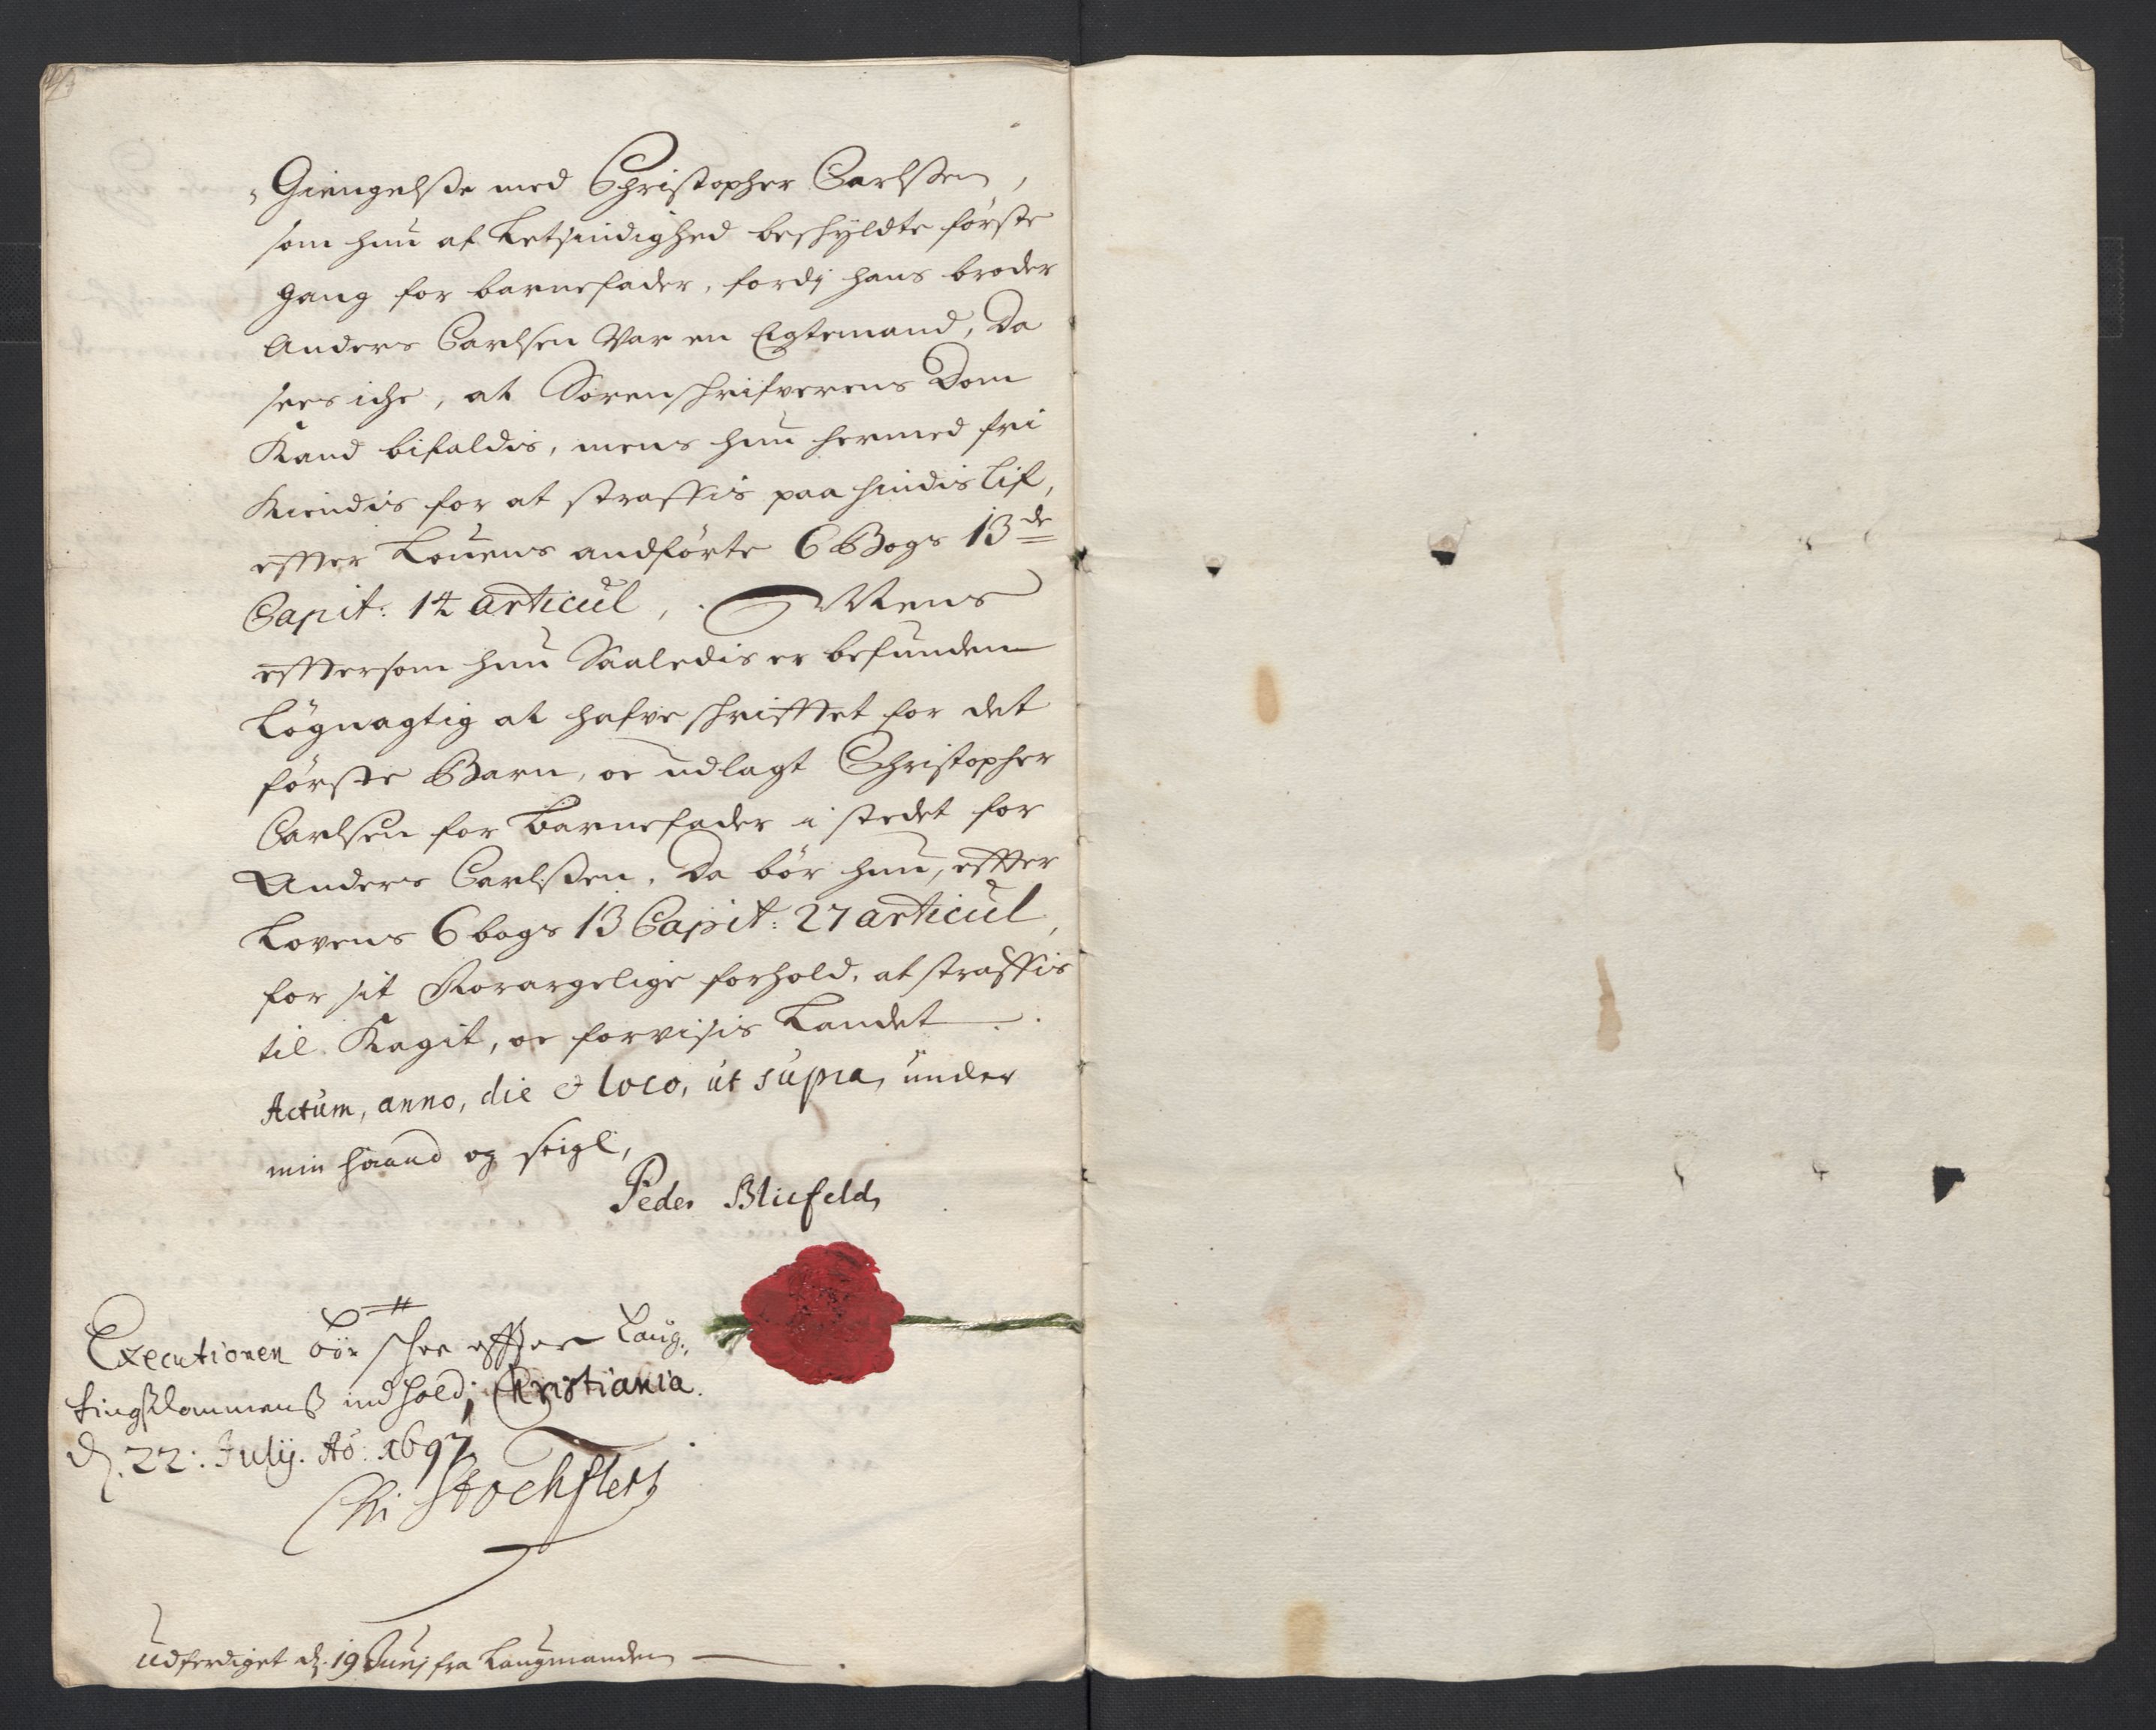 Giengelsse med Christopher Carlssen,
som hun af Letsindighed beskyldte første
gang for barnefader, fordj hans broder
Anders Carlsen Var en Egtemand, Da
sees iche, at Sorenschrifverens Dom
Kand bifaldis, mens hun hermed fri
Kiendis for at straffis paa hindis lif,
effter Louens andførte 6 Bogs 13de
Capit: 14 articul, Mens
efftersom hun Saaledis er befunden
Løgnagtig at hafve schrifftet for det
første Barn, oc udlagt Christopher
Carlsen for Barnefader i stedet for
Anders Carlssen, Da bør hun, effter
Lovens 6 bogs 13 Capit: 27 articul,
for sit Forargelige forhold, at straffis
til Kagit, oc forvisis Landet.
Actum, anno, die & loco, ut supra, under
min haand og seigl,
Peder Bliefeld,
Executionen bør schee effter Laug-
tingsdommens indhold; Christiania
d. 22: Julij. Ao: 1697
Chr Stochfleth
Udferdiget d. 19 Junj fra Laugmanden